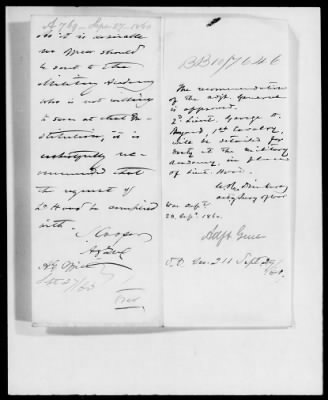 A 769. Sept 27. 1860
As it is desirable
no officer should
be sent to the
Military Academy
who is not willing
to serve at that In-
stitution, it is
respectfully re-
commended that
the request of
Lt Hood be complied
with.
S Cooper
A.G. Office
Sept 27/60
The recommendation
of the Adjt General
is approved.
2d Lieut. George D.
Bayard, 1st Cavalry,
will be detailed for
duty at the military
Academy, in place
of Lieut. Hood.
War Dept
Sept. 1860.
Adjt Genl
S.O. No. 211 Sept